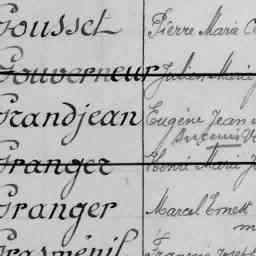 Gousset Pierre Marie
Gouverneur Julien Marie
Grandjean Eugène Jean
Granger Henri Marie
Granger Marcel Ernest
Grasménil François Joseph